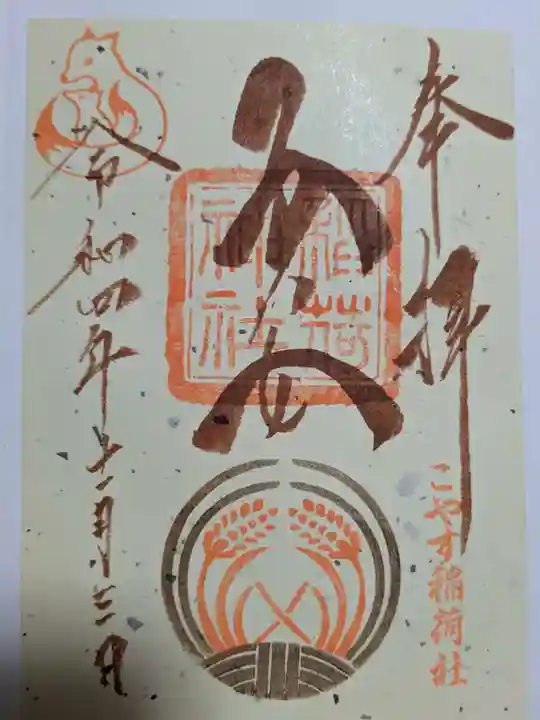 奉拝
こやす稲荷社
稲荷
神社
令和四年十一月三日